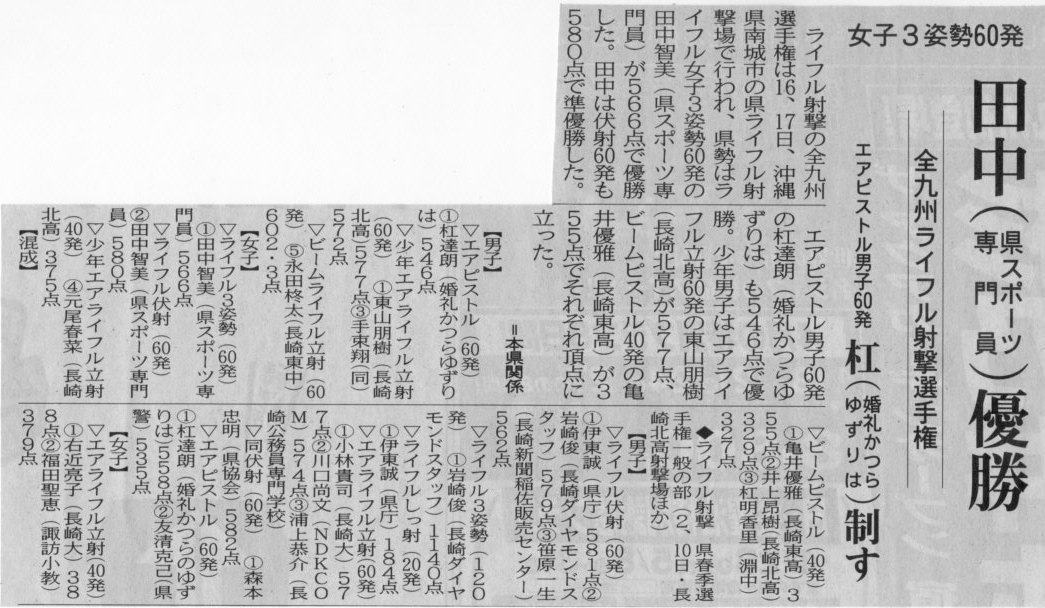 女子３姿勢60発
田中(県スポーツ専門員)優勝
全九州ライフル射撃選手権
エアピストル男子60発
杠(婚礼かつらゆずりは)制す
ライフル射撃の全九州
選手権は16、17日、沖縄
県南城市の県ライフル射
撃場で行われ、県勢はラ
イフル女子３姿勢60発の
田中智美(県スポーツ専
門員)が５６６点で優勝
した。田中は伏射60発も
５８０点で準優勝した。
エアピストル男子60発
の杠達朗(婚礼かつらゆ
ずりは)も５４６点で優
勝。少年男子はエアライ
フル立射60発の東山朋樹
(長崎北高)が５７７点、
ビームピストル40発の亀
井優雅(長崎東高)が３
５５点でそれぞれ頂点に
立った。
＝本県関係
【男子】
▽エアピストル(60発)
①杠達朗(婚礼かつらゆずり
は)５４６点
▽少年エアライフル立射
(60発) ①東山朋樹(長崎
北高)５７７点③手束翔(同)
５７２点
▽ビームライフル立射(60
発) ⑤永田柊太(長崎東中)
６０２・３点
【女子】
▽ライフル３姿勢(60発)
①田中智美(県スポーツ専
門員)５６６点
▽ライフル伏射(60発)
②田中智美(県スポーツ専門
員)５８０点
▽少年エアライフル立射
(40発) ④元尾春菜(長崎
北高)３７５点
【混成】
▽ビームピストル(40発)
①亀井優雅(長崎東高)３
５５点②井上昂樹(長崎北高)
３２９点③杠明香里(淵中)
３２７点
◆ライフル射撃 県春季選
手権一般の部(２、10日・長
崎北高射撃場ほか)
【男子】
▽ライフル伏射(60発)
①伊東誠(県庁)５８１点②
岩崎俊(長崎ダイヤモンドス
タッフ)５７９点③笹原一生
(長崎新聞稲佐販売センター)
５６２点
▽ライフル３姿勢(１２０
発) ①岩崎俊(長崎ダイヤ
モンドスタッフ)１１４０点
▽ライフルしっ射(20発)
①伊東誠(県庁)１８４点
▽エアライフル立射(60発)
①小林貴司(長崎大)５７
７点②川口尚文(ＮＤＫＣＯ
Ｍ)５７４点③浦上恭介(長
崎公務員専門学校)
▽同伏射(60発) ①森本
忠明(県協会)５８２点
▽エアピストル(60発)
①杠達朗(婚礼かつらのゆず
りは)５５８点②友清克己(県
警)５３５点
【女子】
▽エアライフル立射(40発)
①右近亮子(長崎大)３８
８点②福田聖恵(諏訪小教)
３７９点